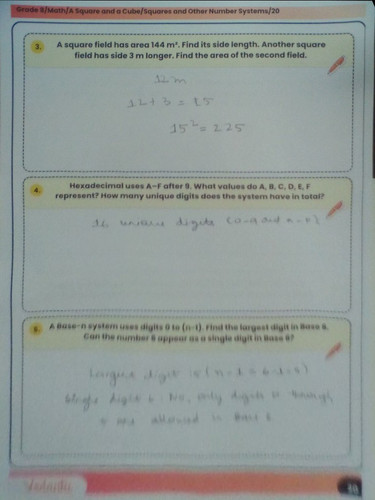 Grade 8/Math/A Square and a Cube/Squares and Other Number Systems/20
3.
A square field has area 144 m². Find its side length. Another square
field has side 3 m longer. Find the area of the second field.
12m
12+3 = 15
15² = 225
4.
Hexadecimal uses A–F after 9. What values do A, B, C, D, E, F
represent? How many unique digits does the system have in total?
16 unique digits
5.
A Base-n system uses digits 0 to (n-1). Find the largest digit in Base 6.
Can the number 6 appear as a single digit in Base 6?
digit is (n-1 = 6-1=5)
Single digit 6: No, only digits 0 through
5 are allowed in Base 6
20